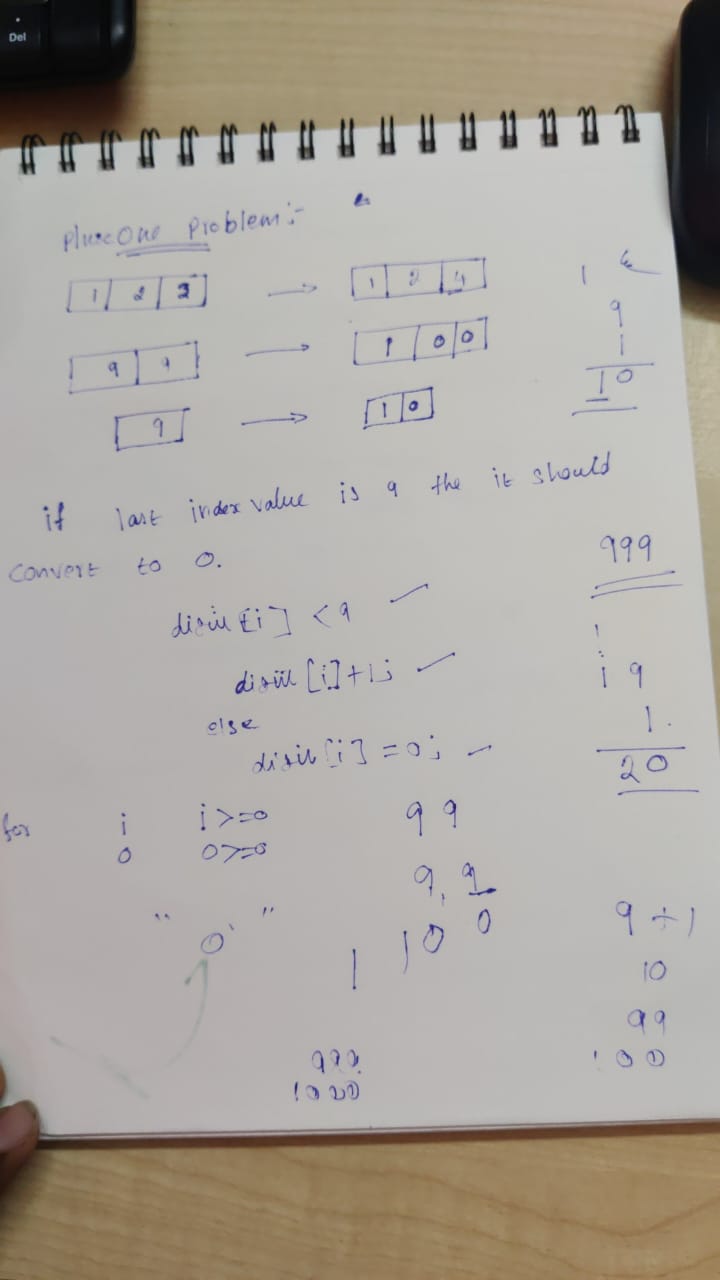 Del
PlusOne Problem:-
1 2 3 → 1 2 4
9 9 → 1 0 0
9 → 1 0
1
9
1
10
if last index value is 9 the it should
convert to 0.
999
digit[i] < 9
digit[i]+1;
else
digit[i] = 0;
19
1.
20
for i i>=0
0 0>=0
99
9, 9
1 1 0 0
" 0 "
9+1
10
99
100
999
1000